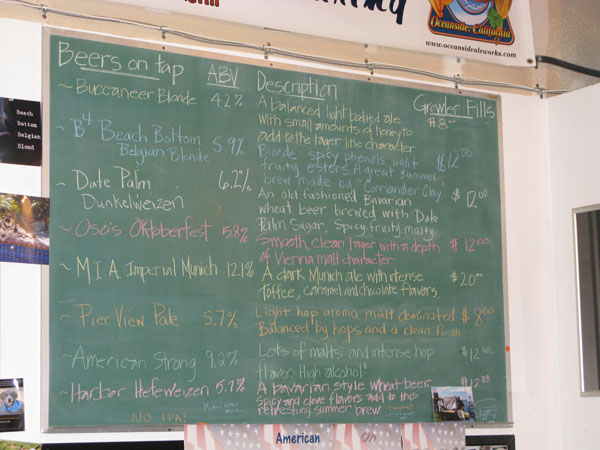 Oceanside, California
www.oceansidealeworks.com
Beach
Bottom
Belgian
Blond
Beers on tap ABV Description Growler Fills
~ Buccaneer Blonde 4.2% A balanced light bodied ale $8.00
with small amounts of honey to
add to the lager like character
~ B4 Beach Bottom 5.9% Blonde spicy phenols light $12.00
Belgian Blonde fruity esters. A great summer
brew made by Corriander Clay
~ Date Palm 6.2% An old fashioned Bavarian $12.00
Dunkelweizen wheat beer brewed with Date
Palm Sugar. Spicy, fruity, malty
~ Oso's Oktoberfest 5.8% Smooth, clean lager with a depth $12.00
of Vienna malt character
~ M.I.A. Imperial Munich 12.1% A dark Munich ale with intense $20.00
toffee, caramel and chocolate flavors.
~ Pier View Pale 5.7% Light hop aroma malt dominated $8.00
Balanced by hops and a clean finish
~ American Strong 9.2% Lots of malts and intense hop $12.00
flavor. High alcohol!
~ Harbor Hefeweizen 5.7% A bavarian style wheat beer, $12.00
spicy and clove flavors add to this
refreshing summer brew
NO IPA?
American